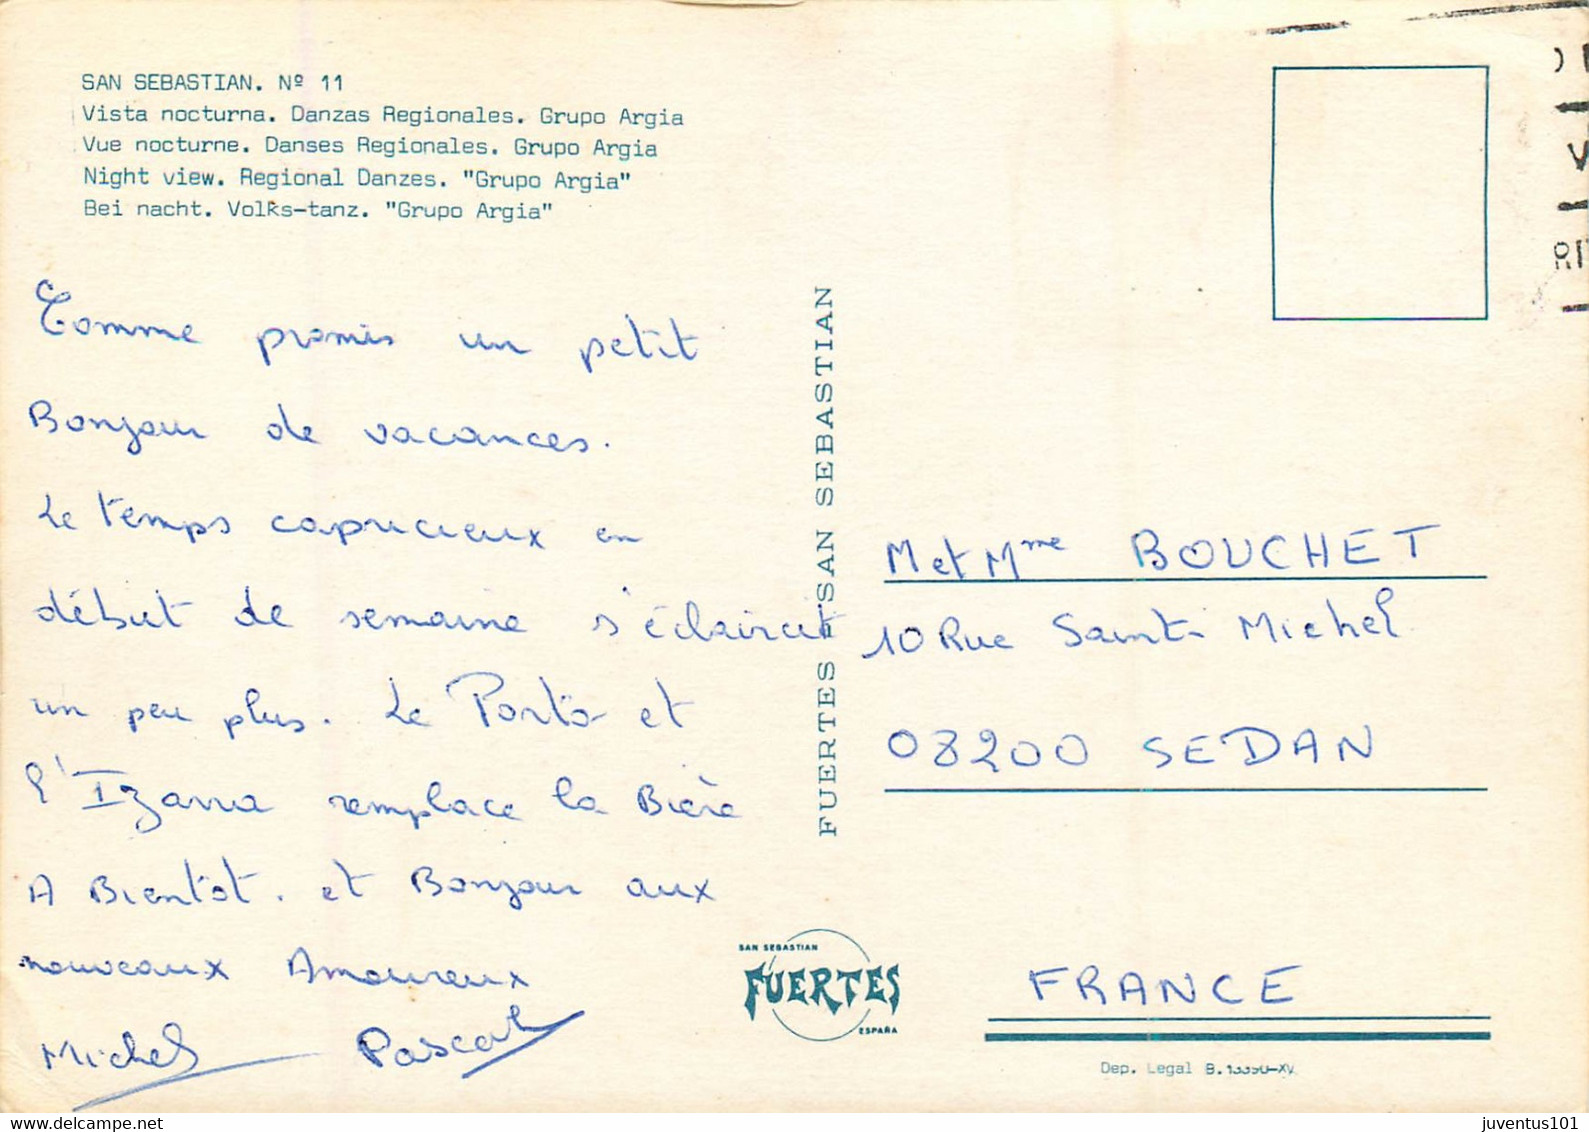 SAN SEBASTIAN. Nº 11
Vista nocturna. Danzas Regionales. Grupo Argia
Vue nocturne. Danses Regionales. Grupo Argia
Night view. Regional Danzes. "Grupo Argia"
Bei nacht. Volks-tanz. "Grupo Argia"
Comme promis un petit
Bonjour de vacances.
Le temps capricieux en
début de semaine s'éclaircit
un peu plus. Le Porto et
l'Izarra remplace la Bière
A Bientôt. et Bonjour aux
nouveaux Amoureux
Michel Pascal
FUERTES SAN SEBASTIAN
M et Mme BOUCHET
10 Rue Saint-Michel
08200 SEDAN
FRANCE
SAN SEBASTIAN
FUERTES
ESPAÑA
Dep. Legal B.
delcampe.net
juventus101